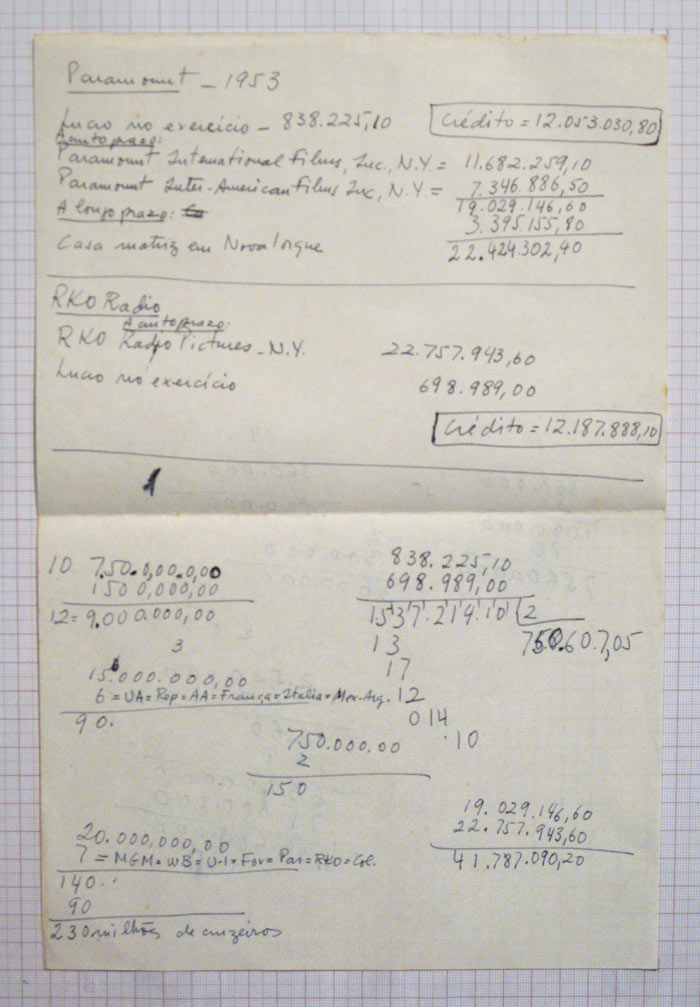 Paramount - 1953
Lucro no exercício - 838.225,10
Crédito = 12.053.030,80
A curto prazo:
Paramount International Films, Inc., N.Y. = 11.682.259,10
Paramount Inter-American Films Inc, N.Y. = 7.346.886,50
19.029.146,60
A longo prazo:
3.395.155,80
Casa matriz em Nova Iorque
22.424.302,40
RKO Radio
A curto prazo:
RKO Radio Pictures - N.Y. 22.757.943,60
Lucro no exercício 698.989,00
Crédito = 12.187.888,10
1
10 7.50.0,00.0,00
150 0,000,00
12 = 9.00 0.000,00
3
838.225,10
698.989,00
1537.214.10 2
13
17
12
014
10
15.000.000,00
6 = UA = Rep = AA = França = Italia = Mex-Arg.
90.
750.000.00
2
150
20.000,000,00
7 = MGM = WB = U-I = Fox = Par = RKO = Col.
140..
90
230 milhões de cruzeiros
19.029.146,60
22.757.943,60
41.787.090,20